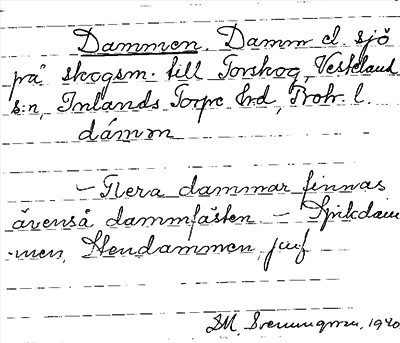 Dammen. Damm el. sjö
på skogsm. till Torskog, Vestelaud
s:n, Inlands Torpe hrd, Bohr. l.
dámm
– Flera dammar finnas
ävenså dammfästen – Spikdam
men, Stendammen, jmf
1940